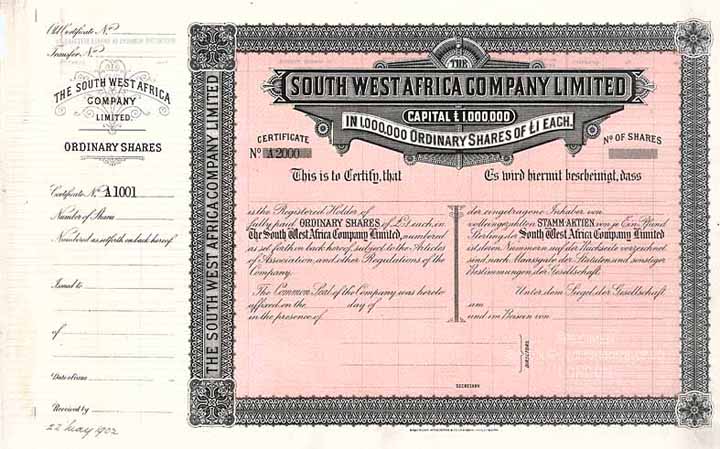 Old Certificate No
Transfer No
THE SOUTH WEST AFRICA
COMPANY
LIMITED.
ORDINARY SHARES
Certificate No A1001
Number of Shares
Numbered as set forth on back hereof
Issued to
of
Date of issue
Received by
22 May 1902
THE SOUTH WEST AFRICA COMPANY LIMITED
THE
SOUTH WEST AFRICA COMPANY LIMITED
CAPITAL £1,000,000
IN 1,000,000 ORDINARY SHARES OF £1 EACH.
CERTIFICATE
No A2000
No OF SHARES
This is to Certify, that
is the Registered Holder of
fully paid ORDINARY SHARES of £1 each in
The South West Africa Company Limited, numbered
as set forth on back hereof, subject to the Articles
of Association, and other Regulations of the
Company.
The Common Seal of the Company was hereto
affixed on the day of
in the presence of
Es wird hiermit bescheinigt, dass
der eingetragene Inhaber von
volleingezahlten STAMM-AKTIEN von je Ein Pfund
Sterling der South West Africa Company Limited
ist, deren Nummern auf der Rückseite verzeichnet
sind, nach Maasgabe der Statuten und sonstigen
Bestimmungen der Gesellschaft.
Unter dem Siegel der Gesellschaft
am
und im Beisein von
DIRECTORS
SECRETARY